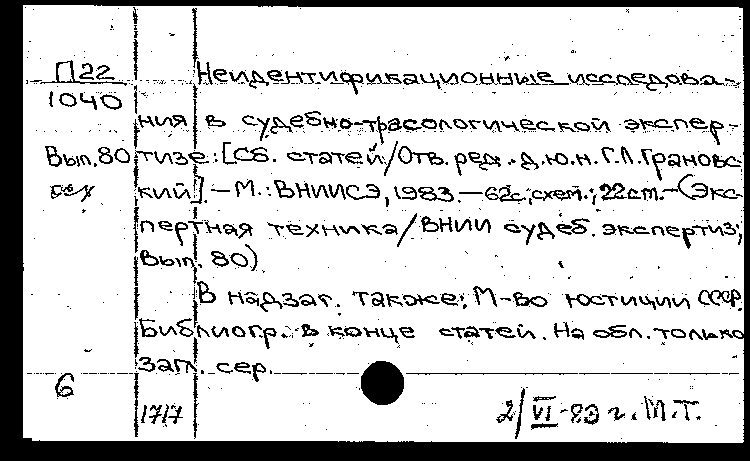 П22 Неидентификационные исследова-
1040
ния в судебно-трасологической экспер-
Вып.80 тизе: [Сб. статей/Отв. ред. д.ю.н. Г.Л. Грановс-
кий]. – М.: ВНИИСЭ, 1983. – 62с., схем.; 22см. – (Экс-
пертная техника/ВНИИ судеб. экспертиз;
Вып. 80)
В надзаг. также: М-во юстиции СССР.
Библиогр. в конце статей. На обл. только
загл. сер.
6
1717 2/VI-83 г. М.Т.